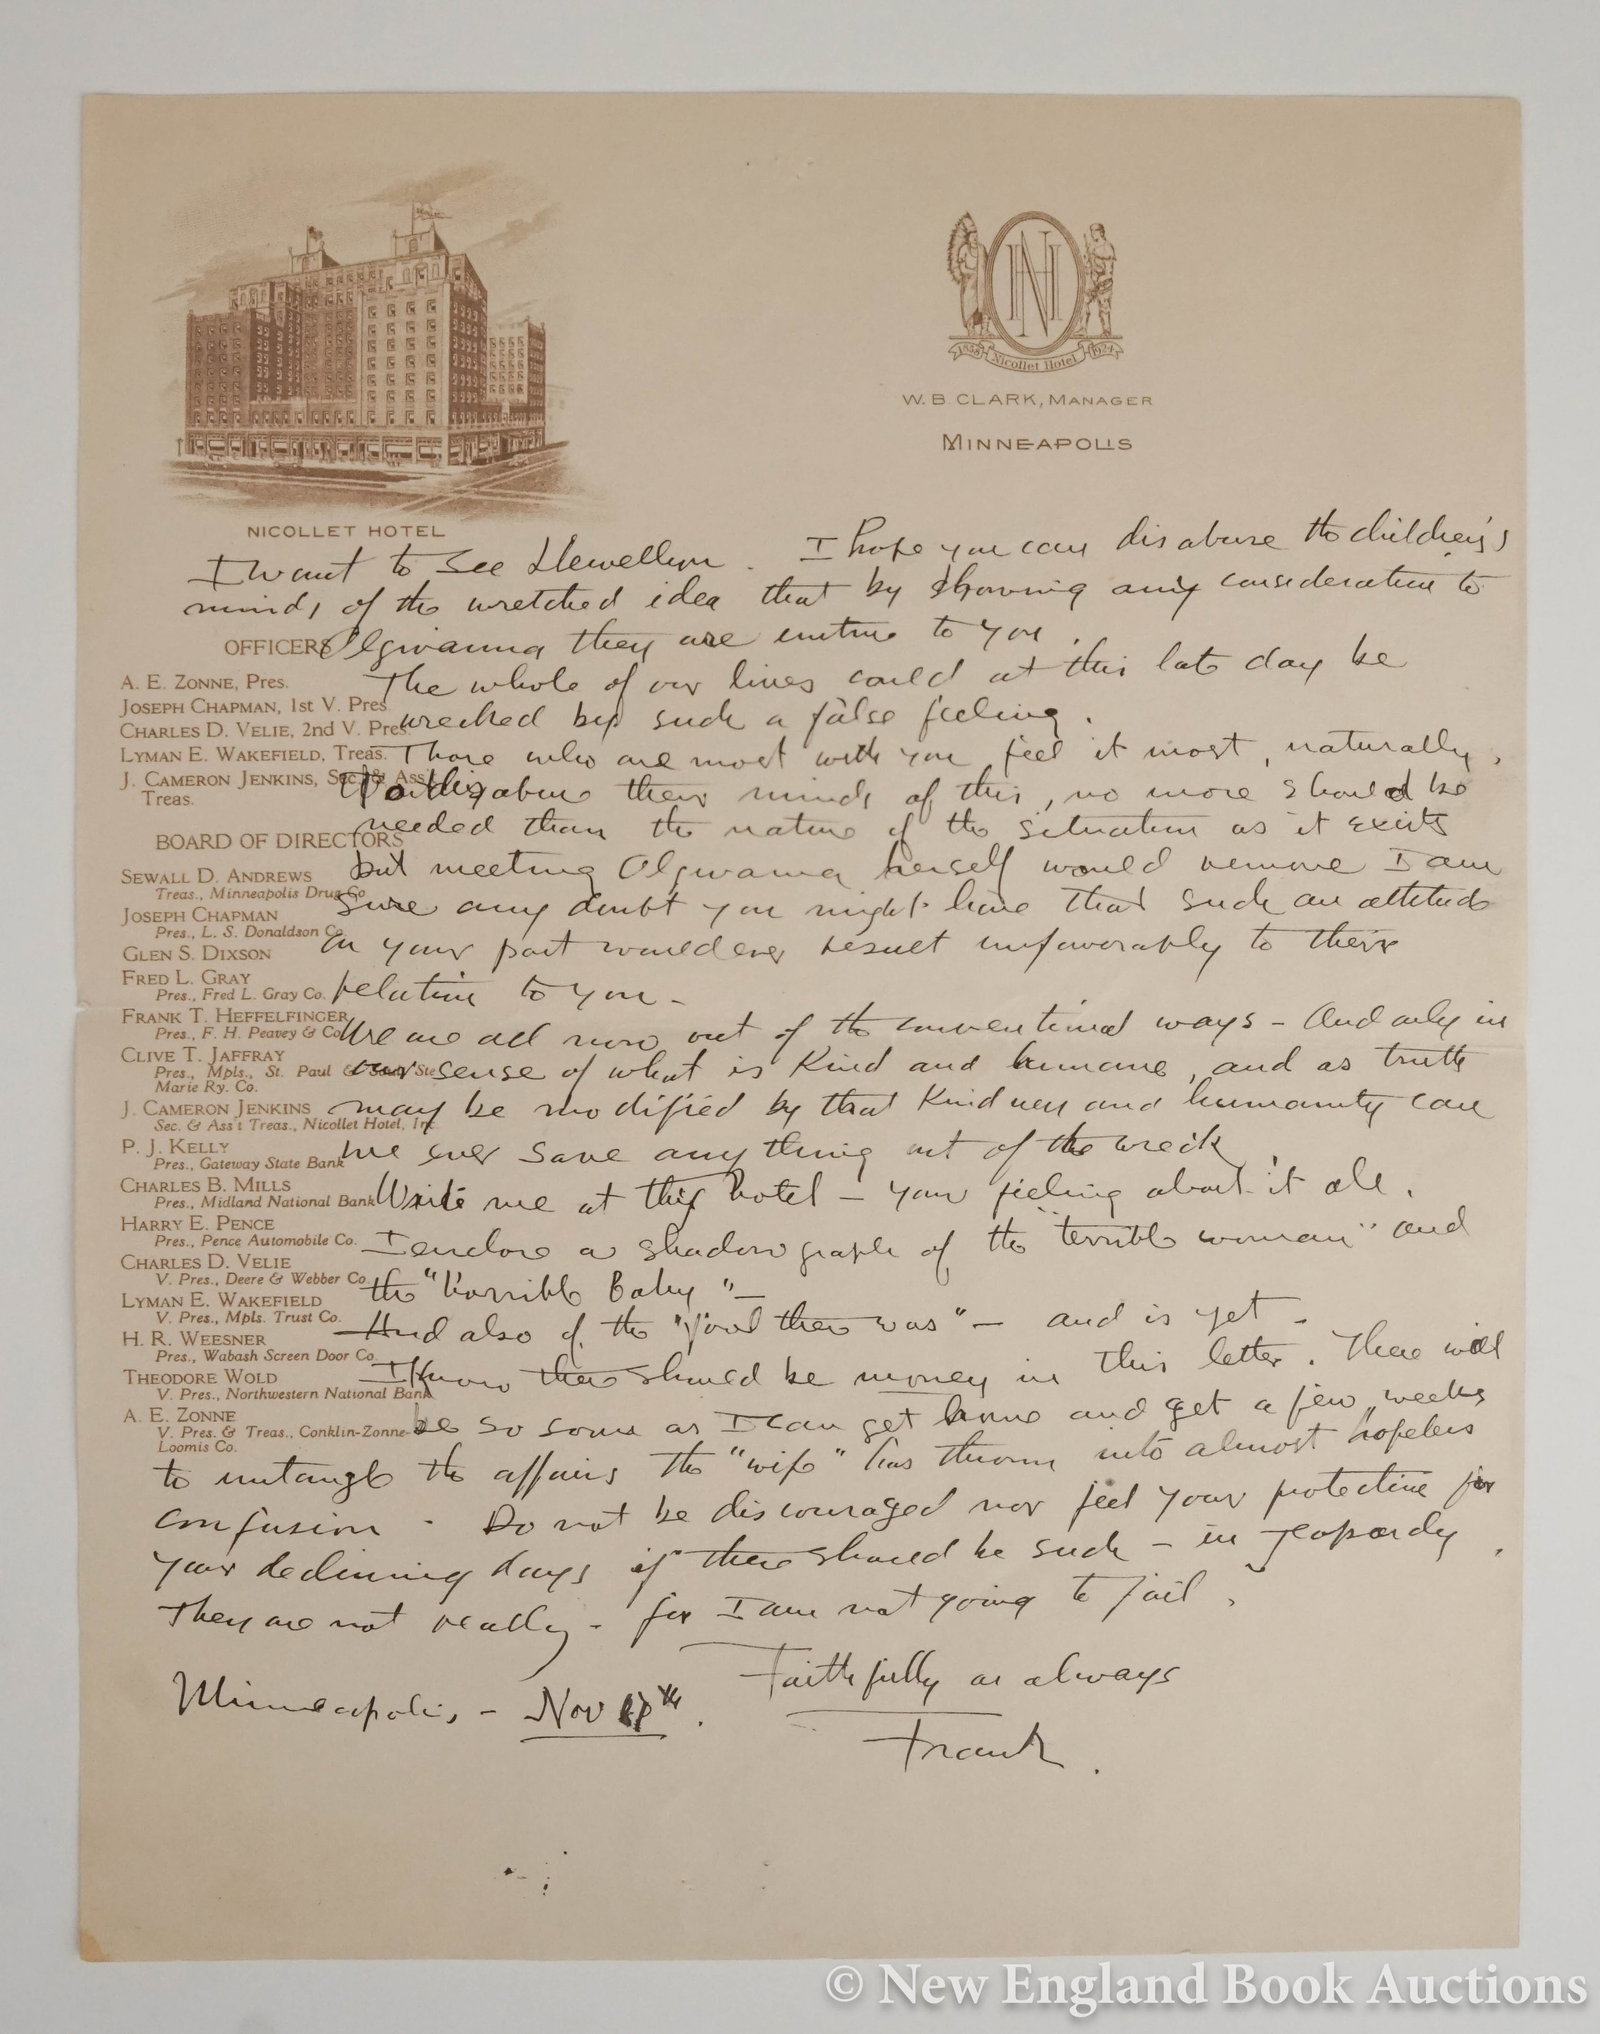 1858 Nicollet Hotel 1924
W. B. CLARK, MANAGER
MINNEAPOLIS
NICOLLET HOTEL
I want to see Llewellyn. I hope you can disabuse the children's
minds of the wretched idea that by showing any consideration to
Olgivanna they are untrue to you.
The whole of our lives could at this late day be
wrecked by such a false feeling.
Those who are most with you feel it most, naturally,
To disabuse their minds of this, no more should be
needed than the nature of the situation as it exists
but meeting Olgivanna herself would remove I am
sure any doubt you might have that such an attitude
on your part would ever result unfavorably to their
relation to you -
We are all now out of the conventional ways - And only in
our sense of what is kind and humane, and as truth
may be modified by that kindness and humanity can
we ever save anything out of the wreck
Write me at this hotel - your feeling about it all.
I enclose a shadowgraph of the "terrible woman" and
the "horrible Baby" -
And also of the "fool there was" - and is yet -
I know there should be money in this letter. There will
be so soon as I can get home and get a few weeks
to untangle the affairs the "wife" has thrown into almost hopeless
confusion - Do not be discouraged nor feel your protection for
your declining days if there should be such - in jeopardy.
They are not really - for I am not going to jail.
Faithfully as always
Minneapolis - Nov
Frank.
OFFICERS
A. E. ZONNE, Pres.
JOSEPH CHAPMAN, 1st V. Pres
CHARLES D. VELIE, 2nd V. Pres
LYMAN E. WAKEFIELD, Treas.
J. CAMERON JENKINS, Sec. & Ass't
Treas.
BOARD OF DIRECTORS
SEWALL D. ANDREWS
Treas., Minneapolis Drug Co
JOSEPH CHAPMAN
Pres., L. S. Donaldson Co.
GLEN S. DIXSON
FRED L. GRAY
Pres., Fred L. Gray Co.
FRANK T. HEFFELFINGER
Pres., F. H. Peavey & Co.
CLIVE T. JAFFRAY
Pres., Mpls., St. Paul & Sault Ste
Marie Ry. Co.
J. CAMERON JENKINS
Sec. & Ass't Treas., Nicollet Hotel, Inc.
P. J. KELLY
Pres., Gateway State Bank
CHARLES B. MILLS
Pres., Midland National Bank
HARRY E. PENCE
Pres., Pence Automobile Co.
CHARLES D. VELIE
V. Pres., Deere & Webber Co.
LYMAN E. WAKEFIELD
V. Pres., Mpls. Trust Co.
H. R. WEESNER
Pres., Wabash Screen Door Co.
THEODORE WOLD
V. Pres., Northwestern National Bank
A. E. ZONNE
V. Pres. & Treas., Conklin-Zonne-
Loomis Co.
© New England Book Auctions